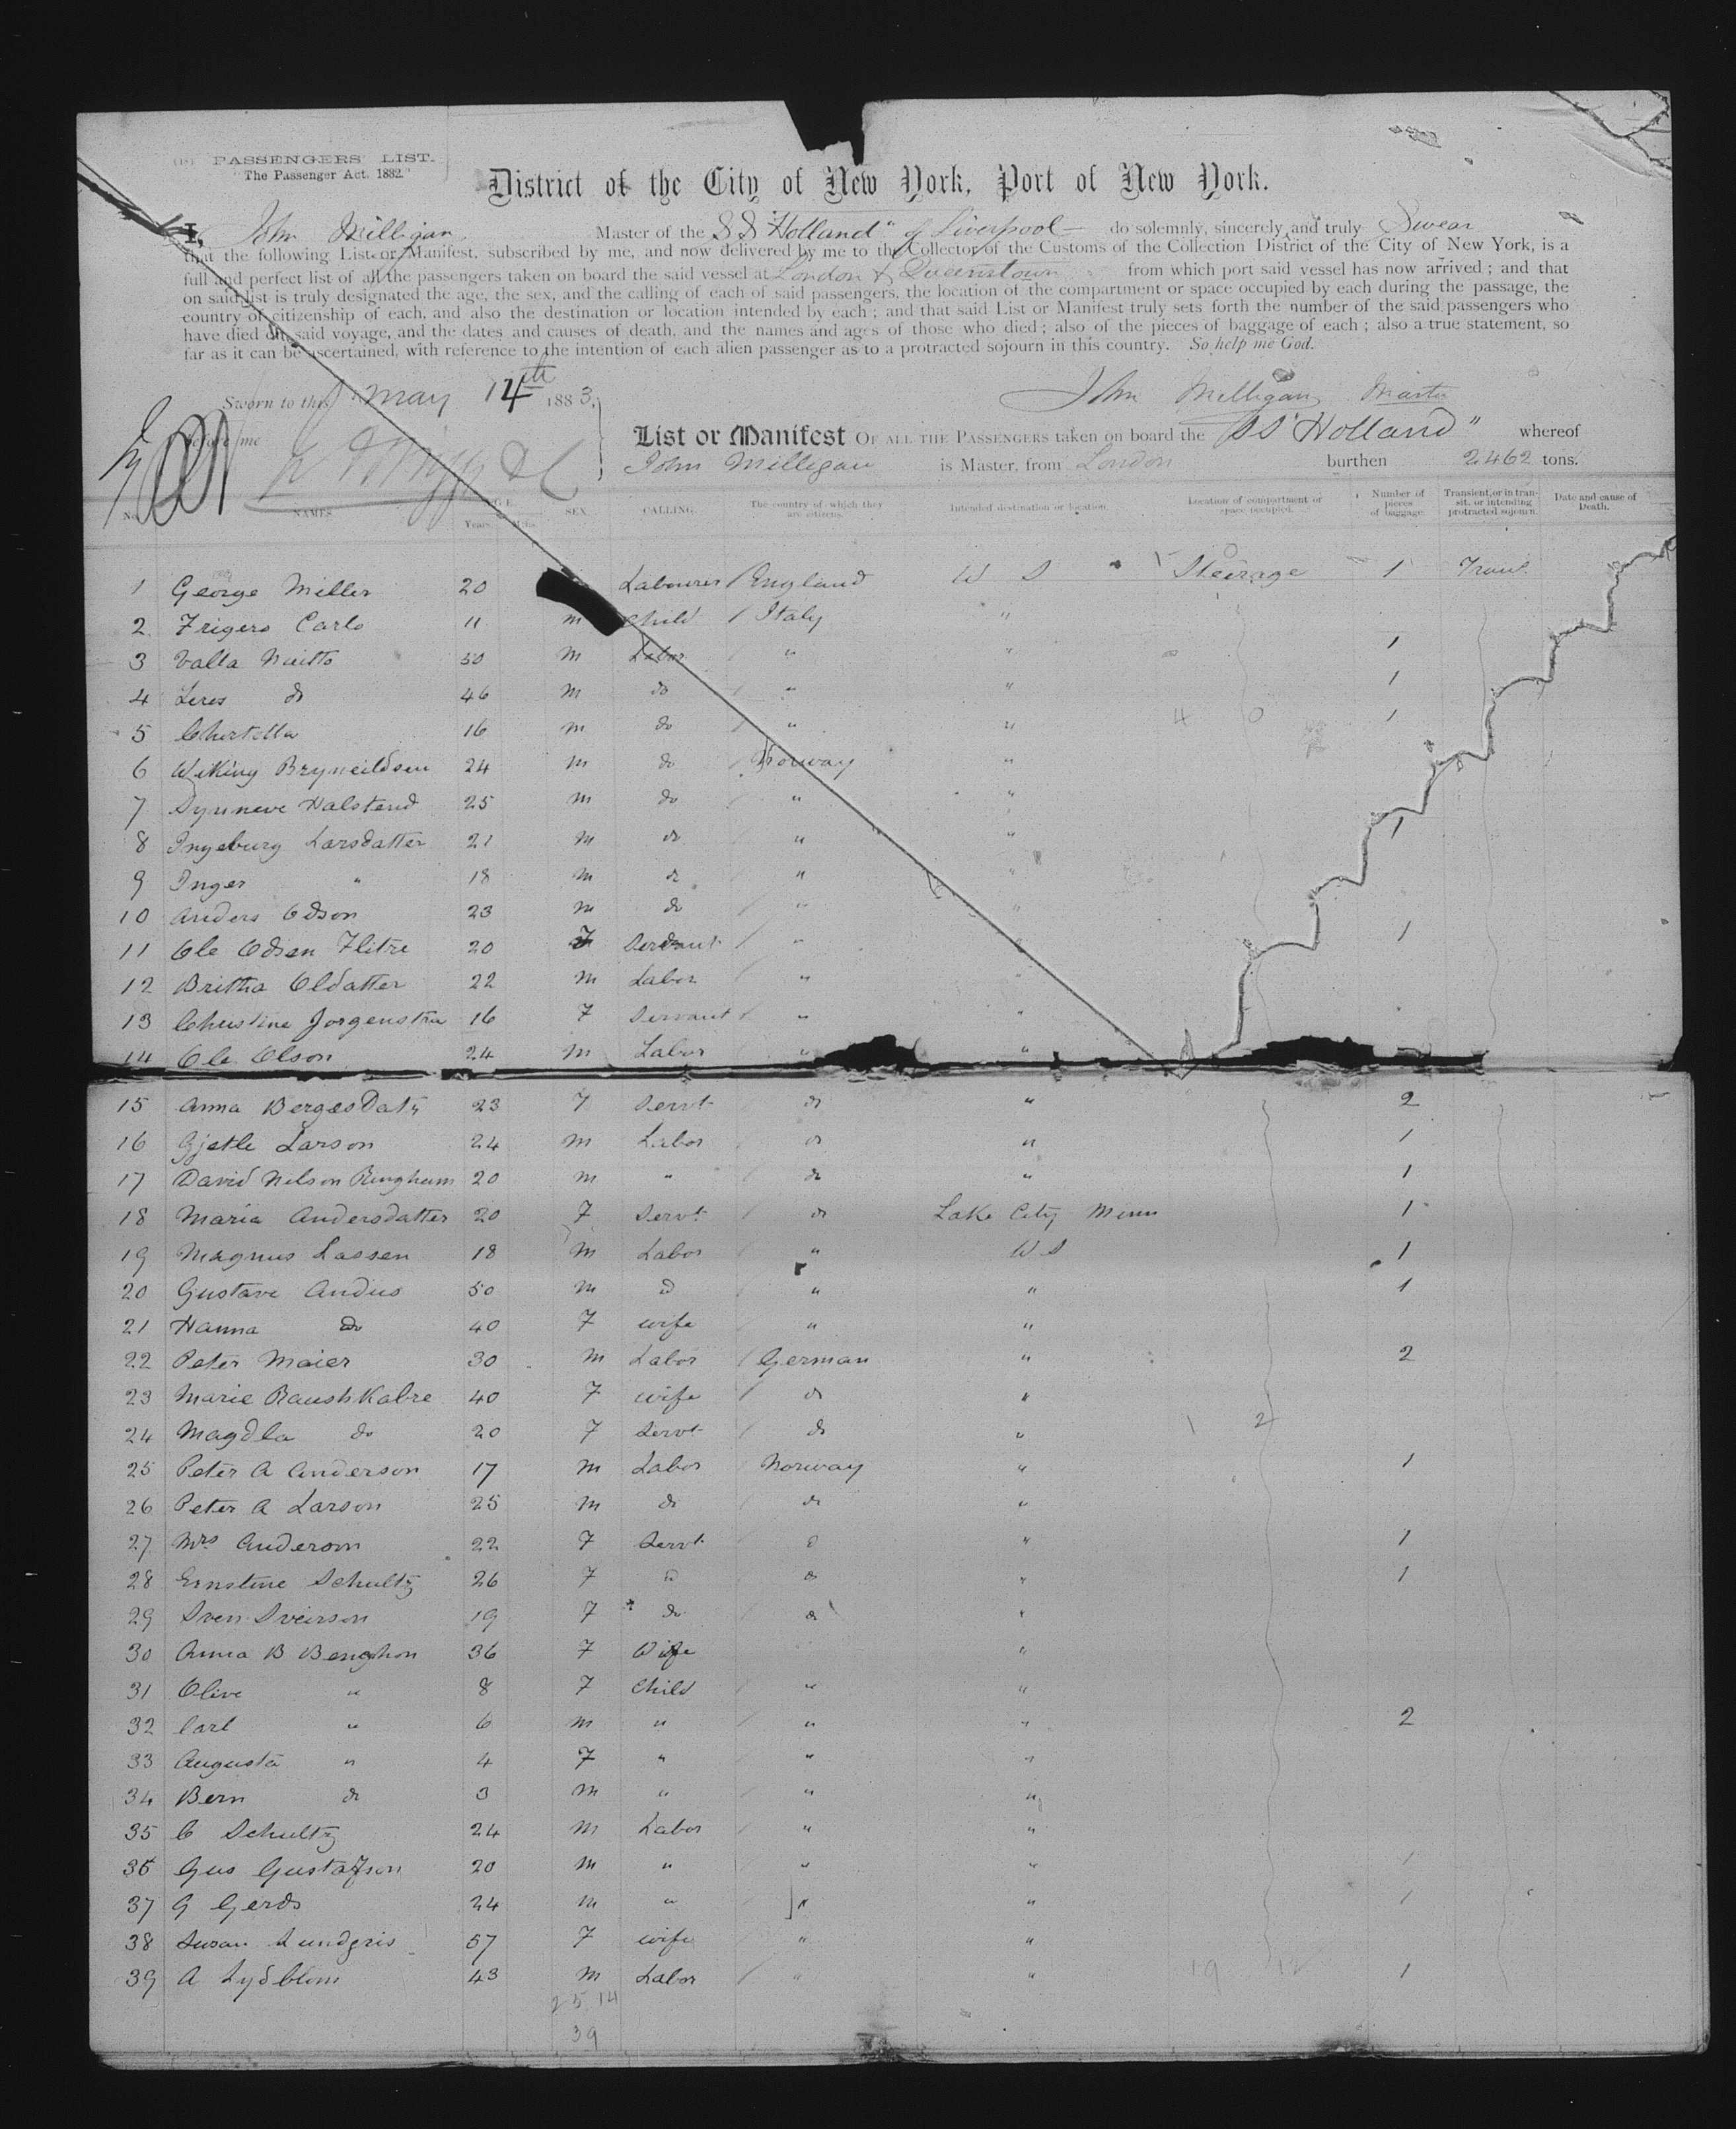 PASSENGERS' LIST.
"The Passenger Act. 1882."
District of the City of New York, Port of New York.
I, John Milligan Master of the SS "Holland" of Liverpool do solemnly, sincerely and truly Swear
that the following List or Manifest, subscribed by me, and now delivered by me to the Collector of the Customs of the Collection District of the City of New York, is a
full and perfect list of all the passengers taken on board the said vessel at London & Queenstown from which port said vessel has now arrived; and that
on said list is truly designated the age, the sex, and the calling of each of said passengers, the location of the compartment or space occupied by each during the passage, the
country of citizenship of each, and also the destination or location intended by each; and that said List or Manifest truly sets forth the number of the said passengers who
have died on said voyage, and the dates and causes of death, and the names and ages of those who died; also of the pieces of baggage of each; also a true statement, so
far as it can be ascertained, with reference to the intention of each alien passenger as to a protracted sojourn in this country. So help me God.
Sworn to this May 14th 1883,
John Milligan Master
before me
List or Manifest OF ALL THE PASSENGERS taken on board the SS "Holland" whereof
John Milligan is Master, from London burthen 2462 tons.
No. NAMES AGE Years Mths SEX. CALLING. The country of which they are citizens. Intended destination or location. Location of compartment or space occupied. Number of pieces of baggage. Transient, or in transit, or intending protracted sojourn. Date and cause of Death.
1 George Miller 20 Labourer England W S Steerage 1 Trans
2 Frigero Carlo 11 m Child Italy "
3 Valla Nuitto 50 m Labor " " 1
4 Leres do 46 m do " " 1
5 Chertella 16 m do " " 4 0 1
6 Wiking Bryneildsen 24 m do Norway "
7 Synneve Halstend 25 m do " "
8 Ingeburg Larsdatter 21 m do " " 1
9 Inger " 18 m do " "
10 Anders Edson 23 m do " "
11 Ole Odsen Flitre 20 F Servant " 1
12 Brittha Oldatter 22 m Labor " "
13 Christine Jorgenstra 16 F Servant " "
14 Ole Olson 24 m Labor " "
15 Anna BergesDatr 23 F Servt do " 2
16 Gjetle Larson 24 m Labor do " 1
17 David Nelson Ringheim 20 m " do " 1
18 Maria Andersdatter 20 F Servt do Lake City Minn 1
19 Magnus Lassen 18 m Labor " W S 1
20 Gustave Andus 50 m do " " 1
21 Hanna do 40 F wife " "
22 Peter Maier 30 m Labor German " 2
23 Marie Raushkabre 40 F wife do "
24 Magdla do 20 F Servt do " 1 2
25 Peter A Anderson 17 m Labor Norway " 1
26 Peter A Larson 25 m do do "
27 Mrs Anderom 22 F Servt do " 1
28 Ernstine Schultz 26 F do do " 1
29 Sven Sveirson 19 F do do "
30 Anna B Benghon 36 F Wife "
31 Olive " 8 F Child " "
32 Carl " 6 m " " " 2
33 Augusta " 4 F " " "
34 Bern do 3 m " " "
35 C Schultz 24 m Labor " "
36 Gus Gustafson 20 m " " " 1
37 G Gerds 24 m " " " 1
38 Susan Lundgris 57 F wife " "
39 A Lydblom 43 m Labor " " 19 12 1
25 14
39